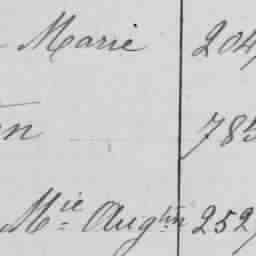 Marie 204
en 785
Mie Augtin 252